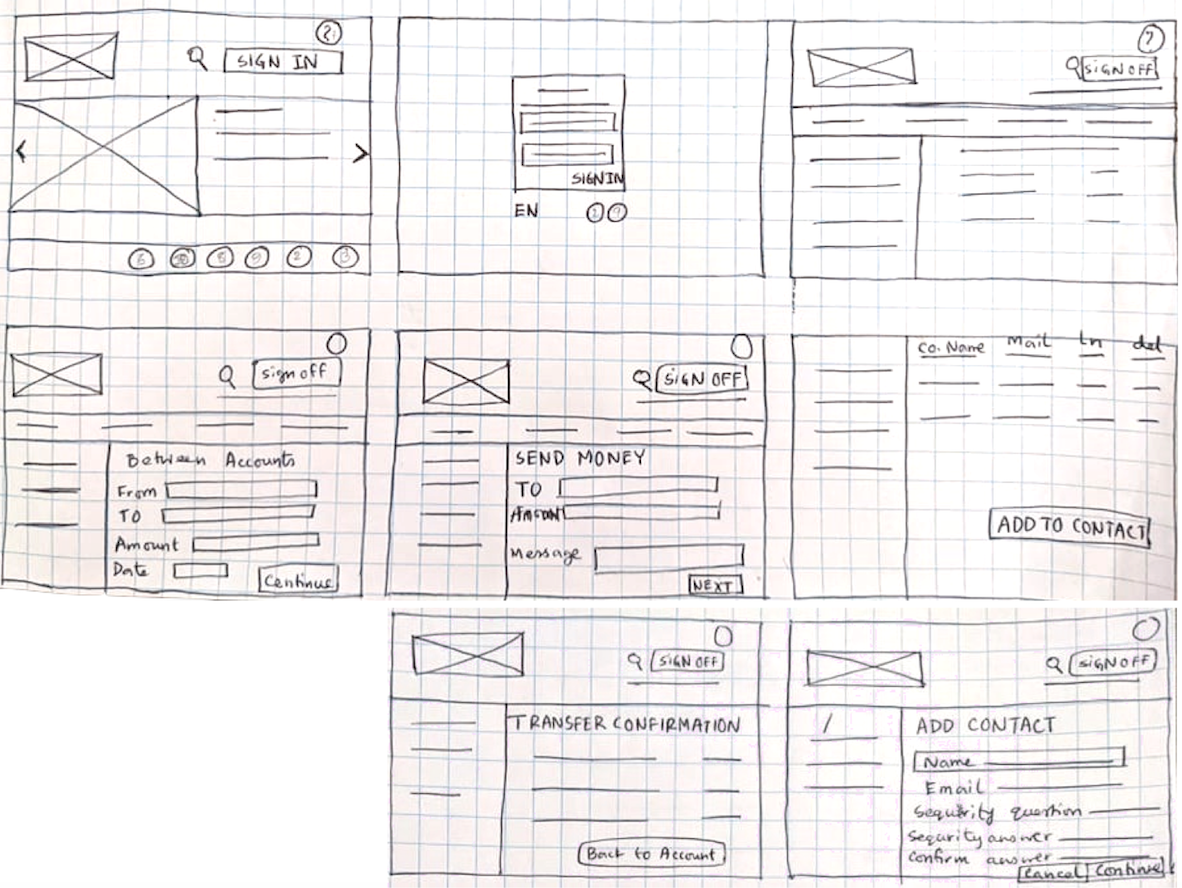 ?
SIGN IN
<
>
SIGN IN
EN
?
SIGN OFF
sign off
Between Accounts
From
TO
Amount
Date
Continue
SIGN OFF
SEND MONEY
TO
Amount
Message
NEXT
Co. Name Mail Ln del
ADD TO CONTACT
SIGN OFF
TRANSFER CONFIRMATION
Back to Account
SIGN OFF
ADD CONTACT
Name
Email
Sequrity question
Sequrity answer
Confirm answer
Cancel Continue